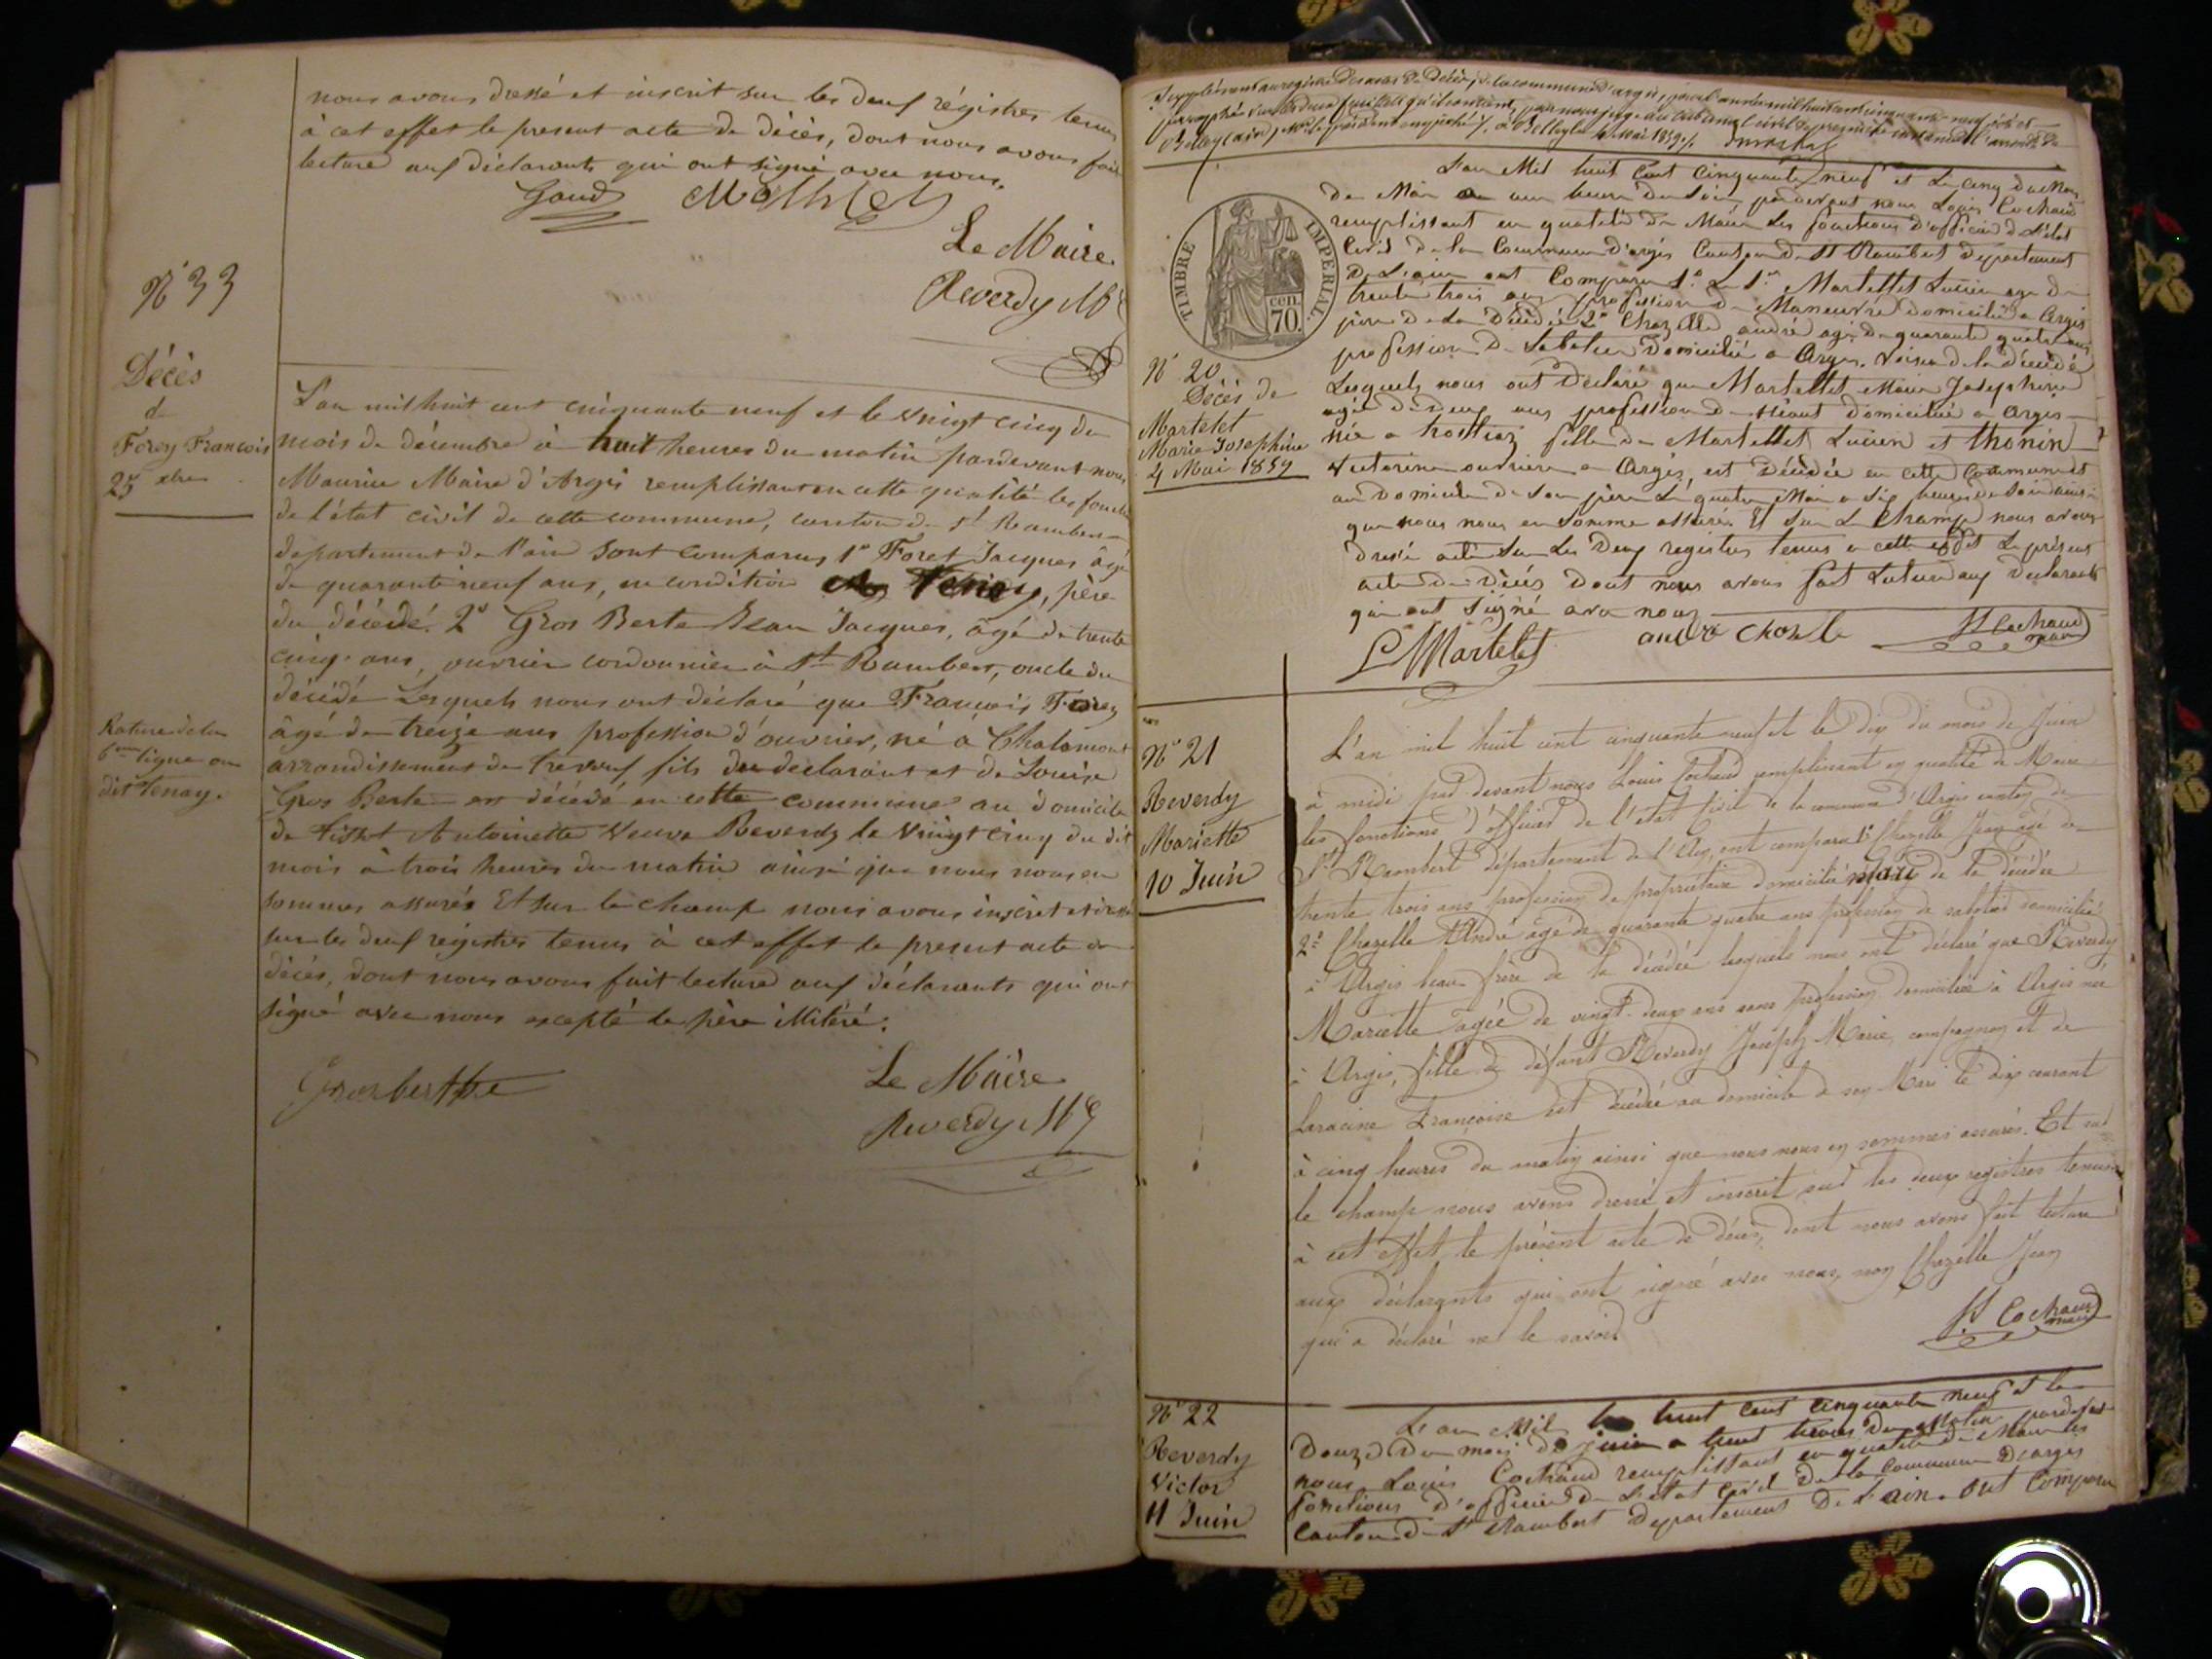 nous avons dressé et inscrit sur les deux régistres tenus
à cet effet le present acte de décès, dont nous avons fait
lecture aux déclarants qui ont signé avec nous.
Goud Mathlet
Le Maire
Reverdy
N° 33
Décès
de
Forey François
25 xbre
L'an mil huit cent cinquante neuf et le vingt cinq du
mois de décembre à huit heures du matin pardevant nous
Maurice Maire d'Argis remplissant en cette qualité les fonctions
de l'état civil de cette commune, canton de St Rambert
departement de l'ain sont comparus 1° Foret Jacques âgé
de quarante neuf ans, en condition Tenay, père
du décédé. 2° Gros Berte Jean Jacques, âgé de trente
cinq ans, ouvrier cordonnier à St Rambert, oncle du
décédé Lesquels nous ont déclaré que François Forey
âgé de treize ans profession d'ouvrier, né à Chalamont
arrondissement de Trevoux fils du declarant et de Louise
Gros Berte est décédé en cette commune au domicile
de Antoinette Veuve Reverdy le vingt cinq du dit
mois à trois heures du matin ainsi que nous nous en
sommes assurés Et sur le champ nous avons inscrit et dressé
sur les deux régistres tenus à cet effet le present acte de
décès, dont nous avons fait lecture aux déclarants qui ont
signé avec nous excepté le père illitéré.
Rature de la
6eme ligne on
dit Tenay.
Grosberthe
Le Maire
Reverdy
Supplément au registre des actes de Décès, de la commune d'argis, pour l'année mil huit cent cinquante-neuf, coté et
paraphé sur les deux feuilles qu'il contient, par nous juge au tribunal civil de première instance de
Belley (ain) Mr le président empêché, à Belley le Mai 1859.
TIMBRE IMPERIAL
cen. 70.
N° 20
Décès de
Martelet
Marie Josephine
4 Mai 1859
L'an Mil huit Cent Cinquante neuf et Le Cinq du Mois
de Mai a une heure du Soir, pardevant nous Louis Cochaud
remplissant en qualité de Maire Les fonctions d'officier de L'état
Civil de la Commune d'argis Canton de St Rambert Departement
De L'ain ont Comparu 1° Le Sr Martellet Lucien age de
trente trois ans profession de Maneuvre Domicilié a Argis
père de La Décédée 2° Chazelle andré agé de quarante quatre ans
profession de Sabotier Domicilié a Argis. voisin de la décédée
Lesquels nous ont Declaré que Martellet Marie Josephine
agée de deux ans profession de néant domiciliée a Argis
née a fille de Martellet Lucien et thonin
Victorine ouvrière a Argis, est Décédée en cette Commune et
au Domicile de Son père Le quatre Mai a Six heures du Soir ainsi
que nous nous en Somme assuré. Et Sur Le Champ nous avons
dressé acte Sur Les Deux registres tenus a cette effet Le présent
acte de Décès Dont nous avons fait Lecture aux Declarants
qui ont Signé avec nous
L Martelet andré chozele Lt Cochaud maire
N° 21
Reverdy
Mariette
10 Juin
L'an mil huit cent cinquante neuf et le dix du mois de Juin
à midi par devant nous Louis Cochaud remplissant en qualité de Maire
les fonctions d'officier de l'état civil de la commune d'Argis canton de
St Rambert département de l'Ain, ont comparu 1° Chazelle Jean âgé de
trente trois ans profession de propriétaire domicilié mari de la décédée
2° Chazelle André âgé de quarante quatre ans profession de sabotier domicilié
à Argis beau-frère de la décédée lesquels nous ont déclaré que Reverdy
Mariette agée de vingt-deux ans sans profession domiciliée à Argis née
à Argis, fille de défunt Reverdy Joseph Marie, compagnon et de
Laracine Françoise est décédée au domicile de son Mari le dix courant
à cinq heures du matin ainsi que nous nous en sommes assurés. Et sur
le champ nous avons dressé et inscrit sur les deux registres tenus
à cet effet le présent acte de décès, dont nous avons fait lecture
aux déclarants qui ont signé avec nous, non Chazelle Jean
qui a déclaré ne le savoir
Lt Cochaud maire
N° 22
Reverdy
Victor
11 Juin
L'an Mil huit cent cinquante neuf et le
Douze Du mois de juin a huit heures Du Matin pardevant
nous Louis Cochaud remplissant en qualité de Maire les
fonctions d'officier de L'état Civil De la Commune D'argis
Canton de St Rambert Departement De L'ain. ont Comparu